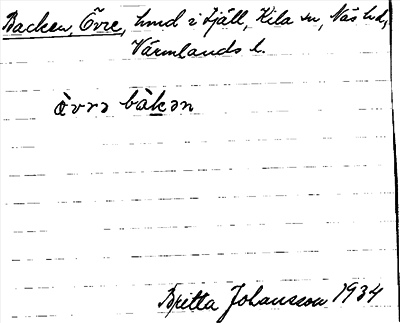 Backen, Övre, hmd i Fjäll, Kila sn, Näs hd,
Värmlands l.
ə̀vrə bàkən
Britta Johansson 1934